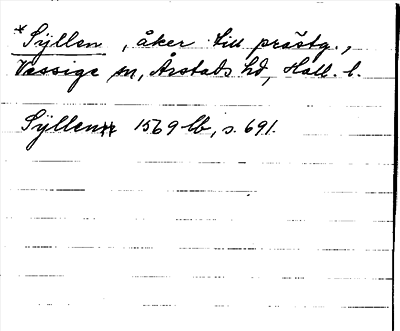 *Syllen, åker till prästg.,
Vessige sn, Årstads hd, Hall. l.
Syllenn 1569 lb, s. 691.